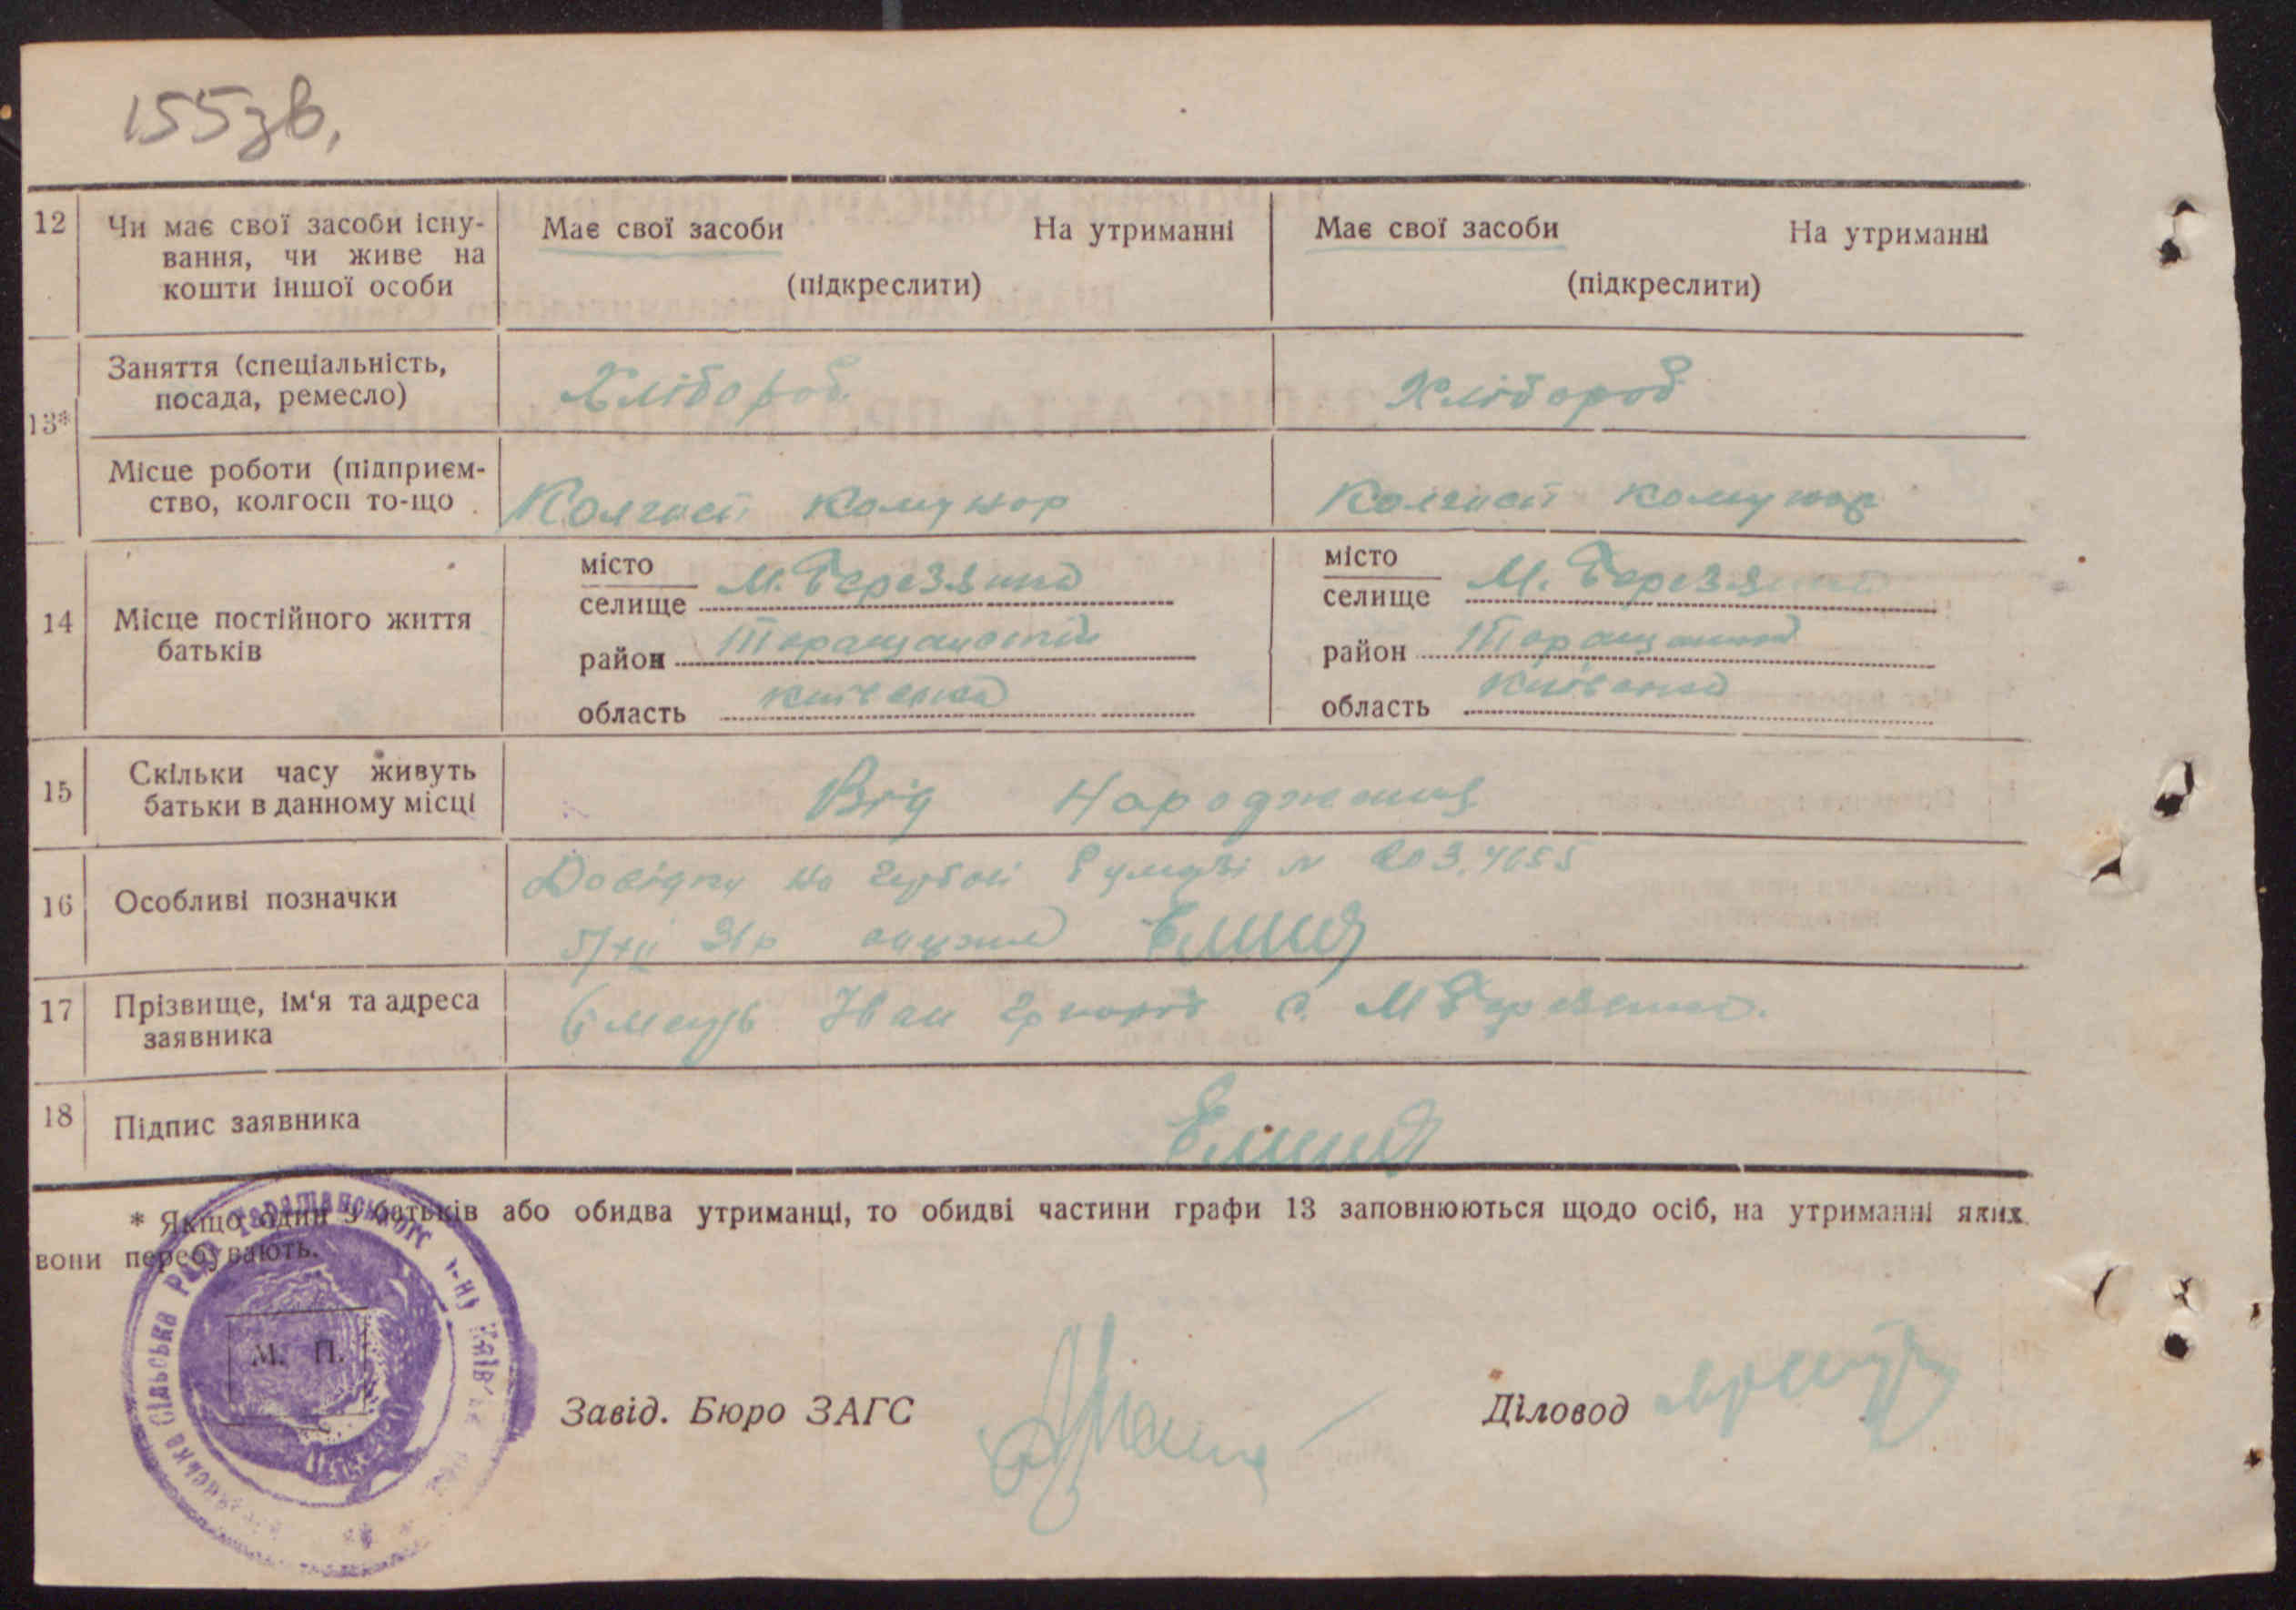 155зв.
12 Чи має свої засоби існу-
вання, чи живе на
кошти іншої особи
Має свої засоби На утриманні
(підкреслити)
Має свої засоби На утриманні
(підкреслити)
13*
Заняття (спеціальність,
посада, ремесло)
Хлібороб
Хлібороб
Місце роботи (підприєм-
ство, колгосп то-що
Колгосп Комунар
Колгосп Комунар
14 Місце постійного життя
батьків
місто
селище М. Березянка
район Таращанський
область Київська
місто
селище М. Березянка
район
область Київська
15 Скільки часу живуть
батьки в данному місці
Від Народження
16 Особливі позначки
Довідку на
5/XII
17 Прізвище, ім'я та адреса
заявника
Іван с. М Березянка.
18 Підпис заявника
* Якщо один з батьків або обидва утриманці, то обидві частини графи 13 заповнюються щодо осіб, на утриманні яких
вони перебувають.
сільська РАДА Таращанського р-ну Київ
М. П.
Завід. Бюро ЗАГС
Діловод